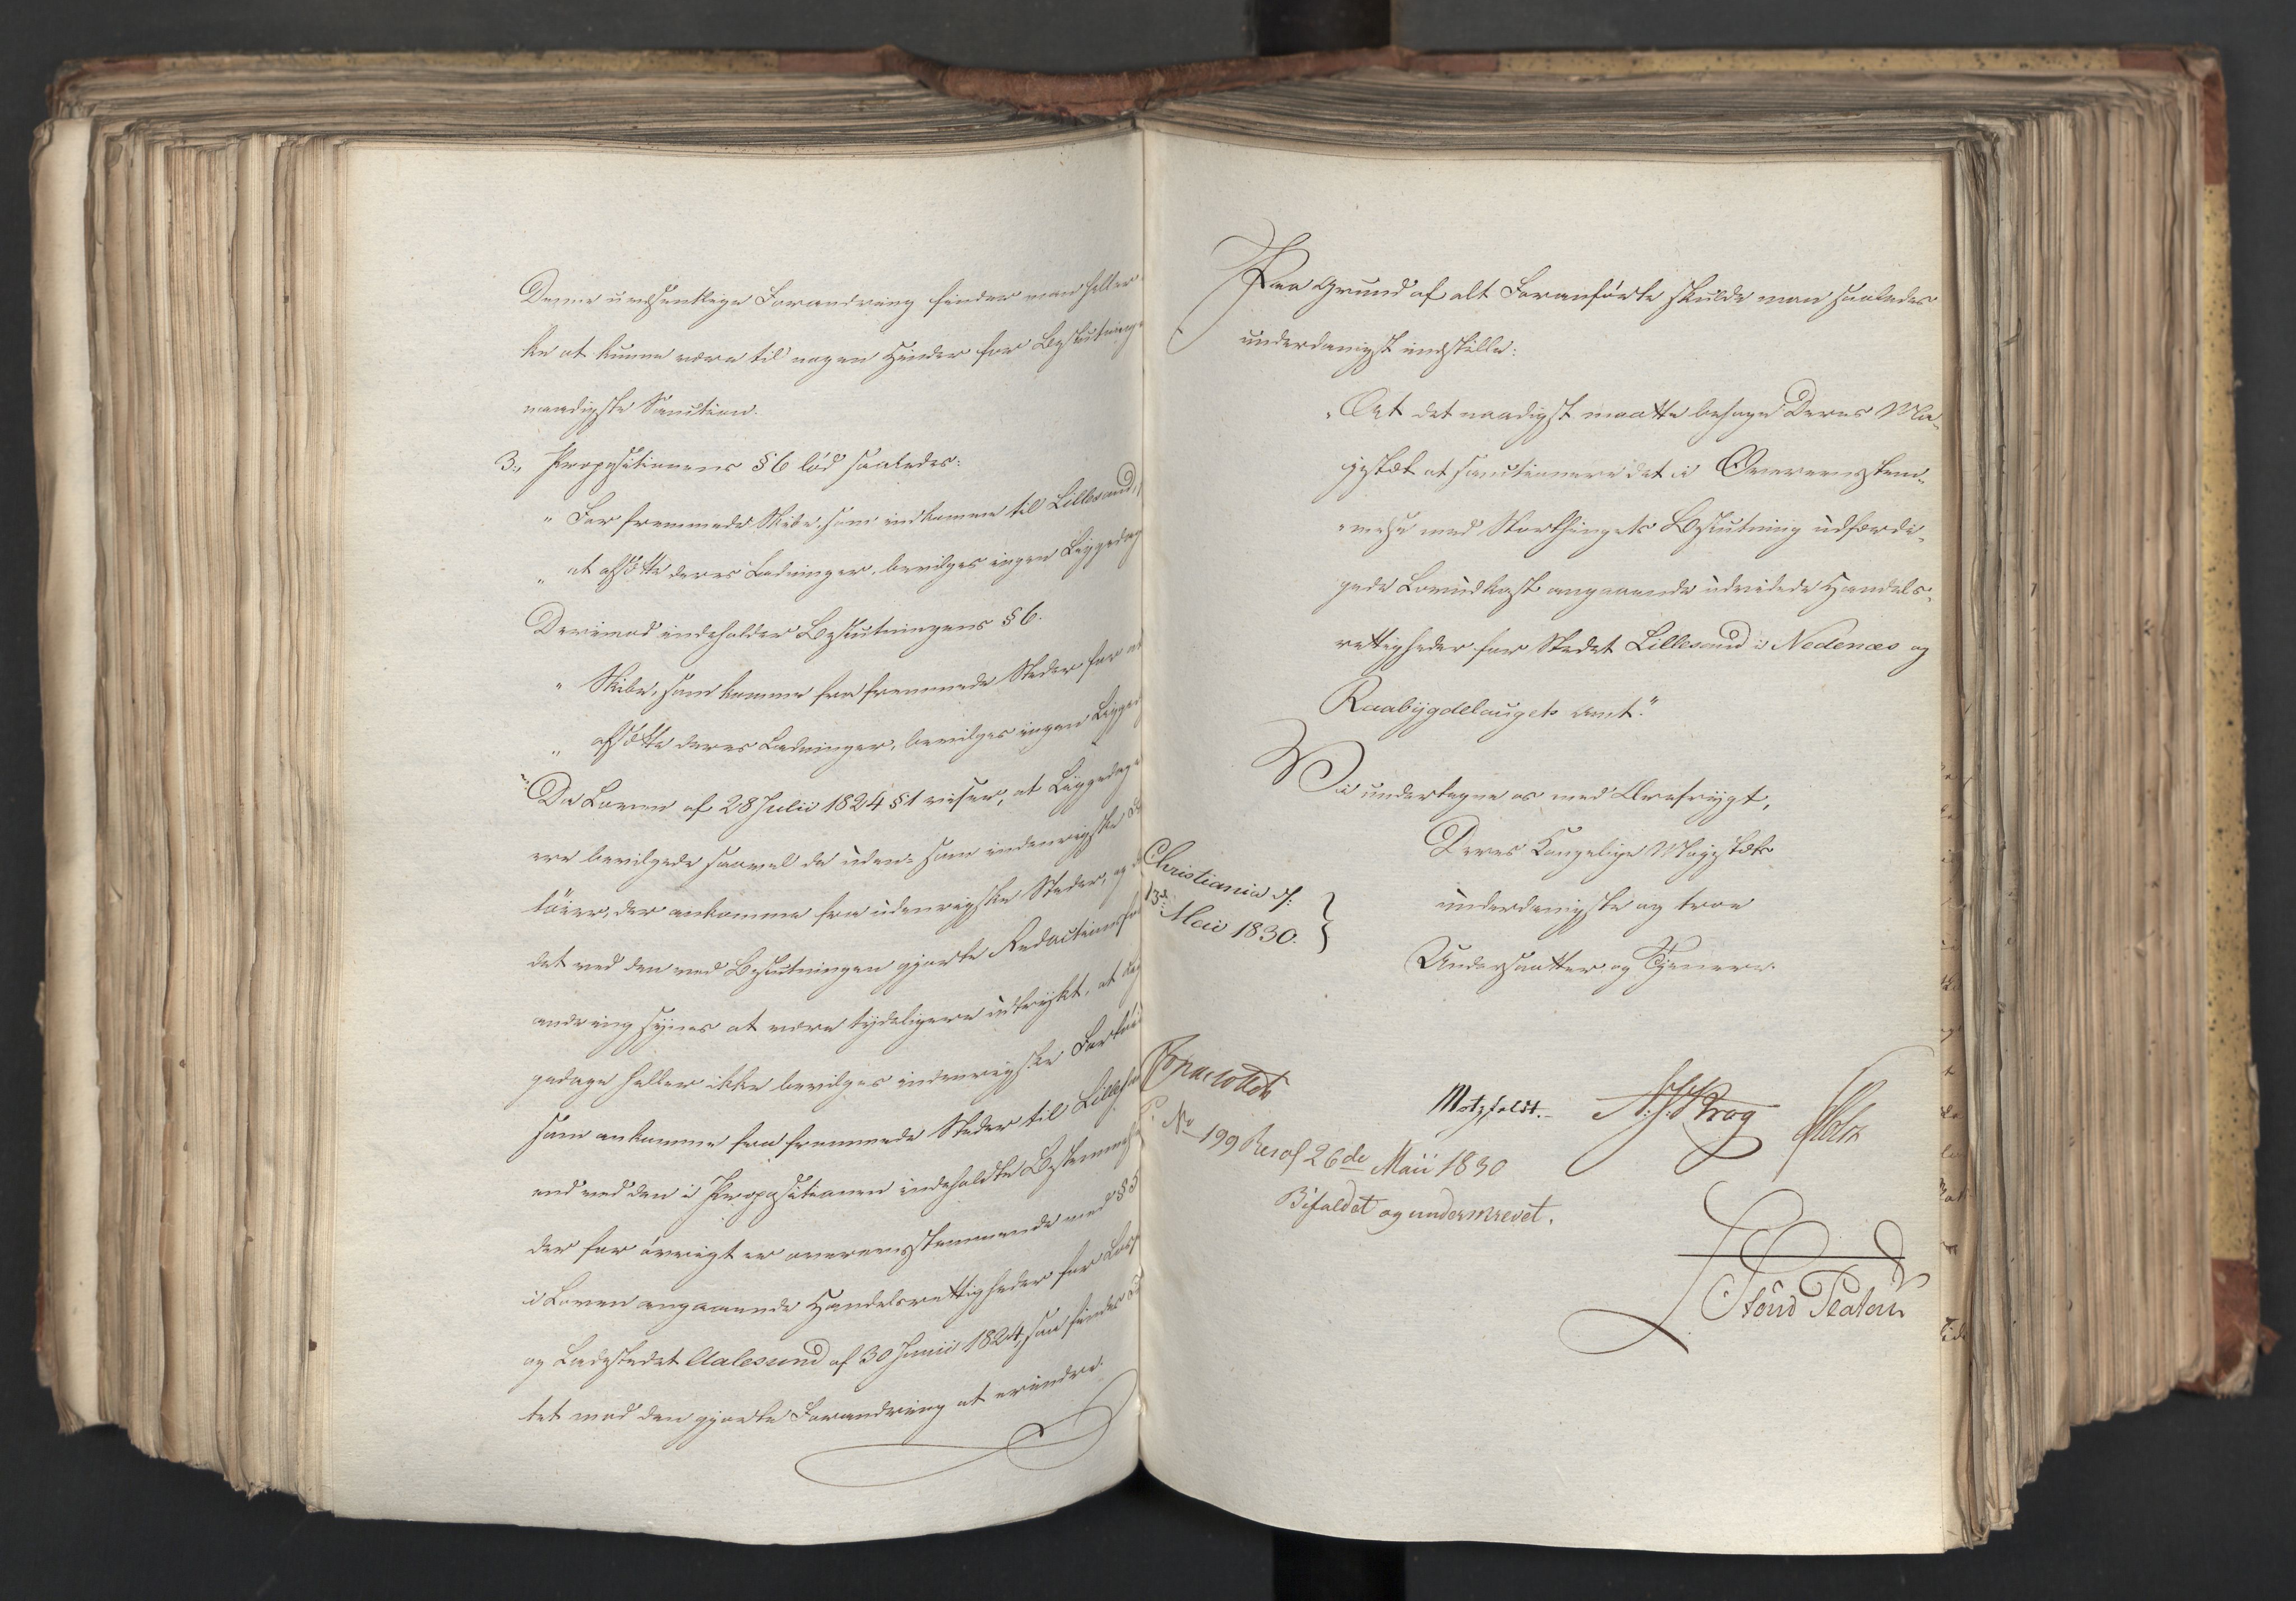 Denne uvæsentlige Forandring finder man heller
ke at kunne være til nogen Hinder for Beslutning
naadigste Sanction.
3., Propositionens § 6 lød saaledes:
" For fremmede Skibe, som indkomme til Lillesand,
" at afsætte deres Ladninger, bevilges ingen Liggedag
Derimod indeholder Beslutningens § 6.
" Skibe, som komme fra fremmede Steder for at
" afsætte deres Ladninger, bevilges ingen Ligged
Da Loven af 28 Julii 1824 § 1 viser, at Liggedage
ere bevilgede saavel de uden- som indenrigske
tøier, der ankomme fra udenrigske Steder, og
det ved den ved Beslutningen gjorte Redactionsfor
andring synes at være tydeligere udtrykt, at Lig
gedage heller ikke bevilges indenrigske Fartøi
som ankomme fra fremmede Steder til Lillesan
end ved den i Propositionen indeholdte Bestemmels
der for øvrigt er overeensstemmende med § 5
i Loven angaaende Handelsrettigheder for Lade
og Ladestedet Aalesund af 30 Junii 1824, saa findes
tet mod den gjorte Forandring at erindre.
Paa Grund af alt Foranførte skulde man saaledes
underdanigst indstille:
"At det naadigst maatte behage Deres Ma-
jestæt at sanctionere det i Overeensstem-
"melse med Storthingets Beslutning udfærdi-
gede Lovudkast angaaende udvidede Handels-
rettigheder for Stedet Lillesand i Nedenæs og
Raabygdelaugets Amt."
Vi undertegne os med Ærefrygt,
Deres Kongelige Majestæts
Christiania d.
13de Maii 1830.
underdanigste og troe
Undersaatter og Tjenere.
Motzfeldt.
Krog
Holst
No 199 Resol 26de Maii 1830
Bifaldet og underskrevet.